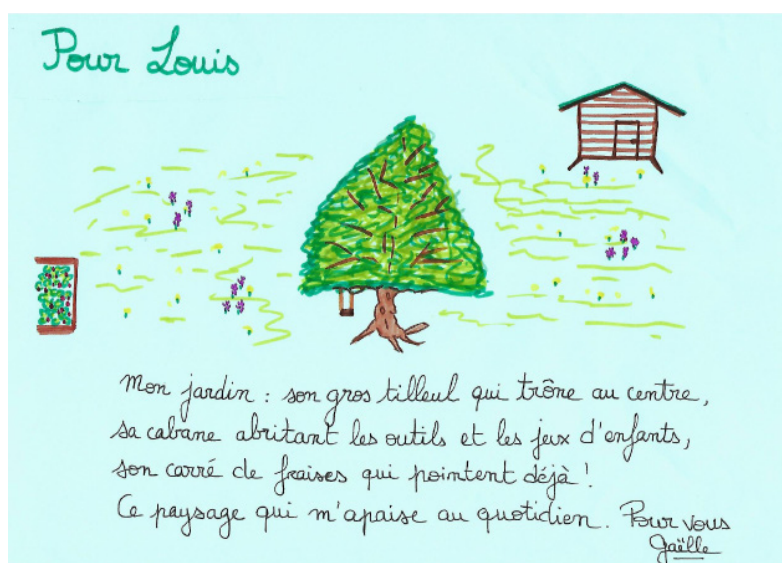 Pour Louis
Mon jardin : son gros tilleul qui trône au centre,
sa cabane abritant les outils et les jeux d'enfants,
son carré de fraises qui pointent déjà !
Ce paysage qui m'apaise au quotidien. Pour vous
Gaëlle